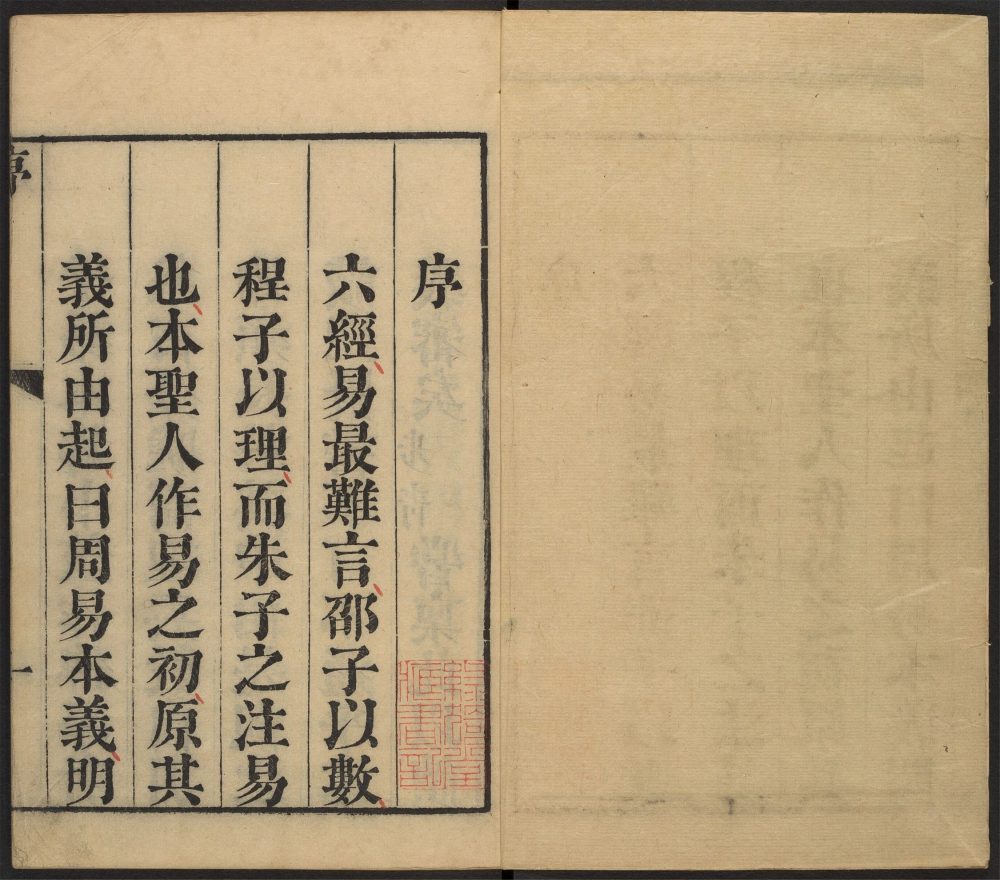 序
六經易最難言邵子以數
程子以理而朱子之注易
也本聖人作易之初原其
義所由起曰周易本義明
序
一